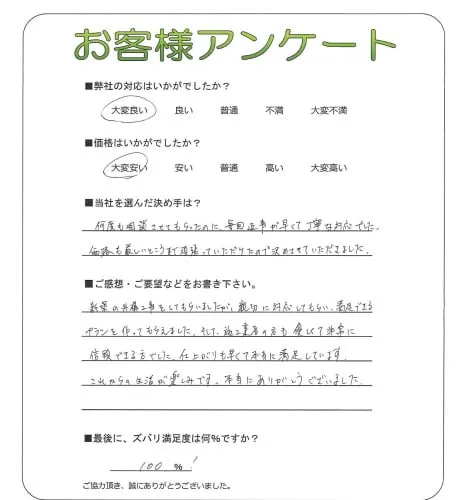 お客様アンケート
■弊社の対応はいかがでしたか？
大変良い 良い 普通 不満 大変不満
■価格はいかがでしたか？
大変安い 安い 普通 高い 大変高い
■当社を選んだ決め手は？
何度も相談させてもらったのに、毎回返事が早くて丁寧な対応でした。
価格も厳しいところまで頑張っていただけたので決めさせていただきました。
■ご感想・ご要望などをお書き下さい。
新築の外構工事をしてもらいましたが、親切に対応してもらい、満足できる
プランを作ってもらえました。そして、施工業者の方も 優しくて非常に
信頼できる方でした。仕上がりも早くて本当に満足しています。
これからの生活が楽しみです。本当にありがとうございました。
■最後に、ズバリ満足度は何％ですか？
100 ％！
ご協力頂き、誠にありがとうございました。